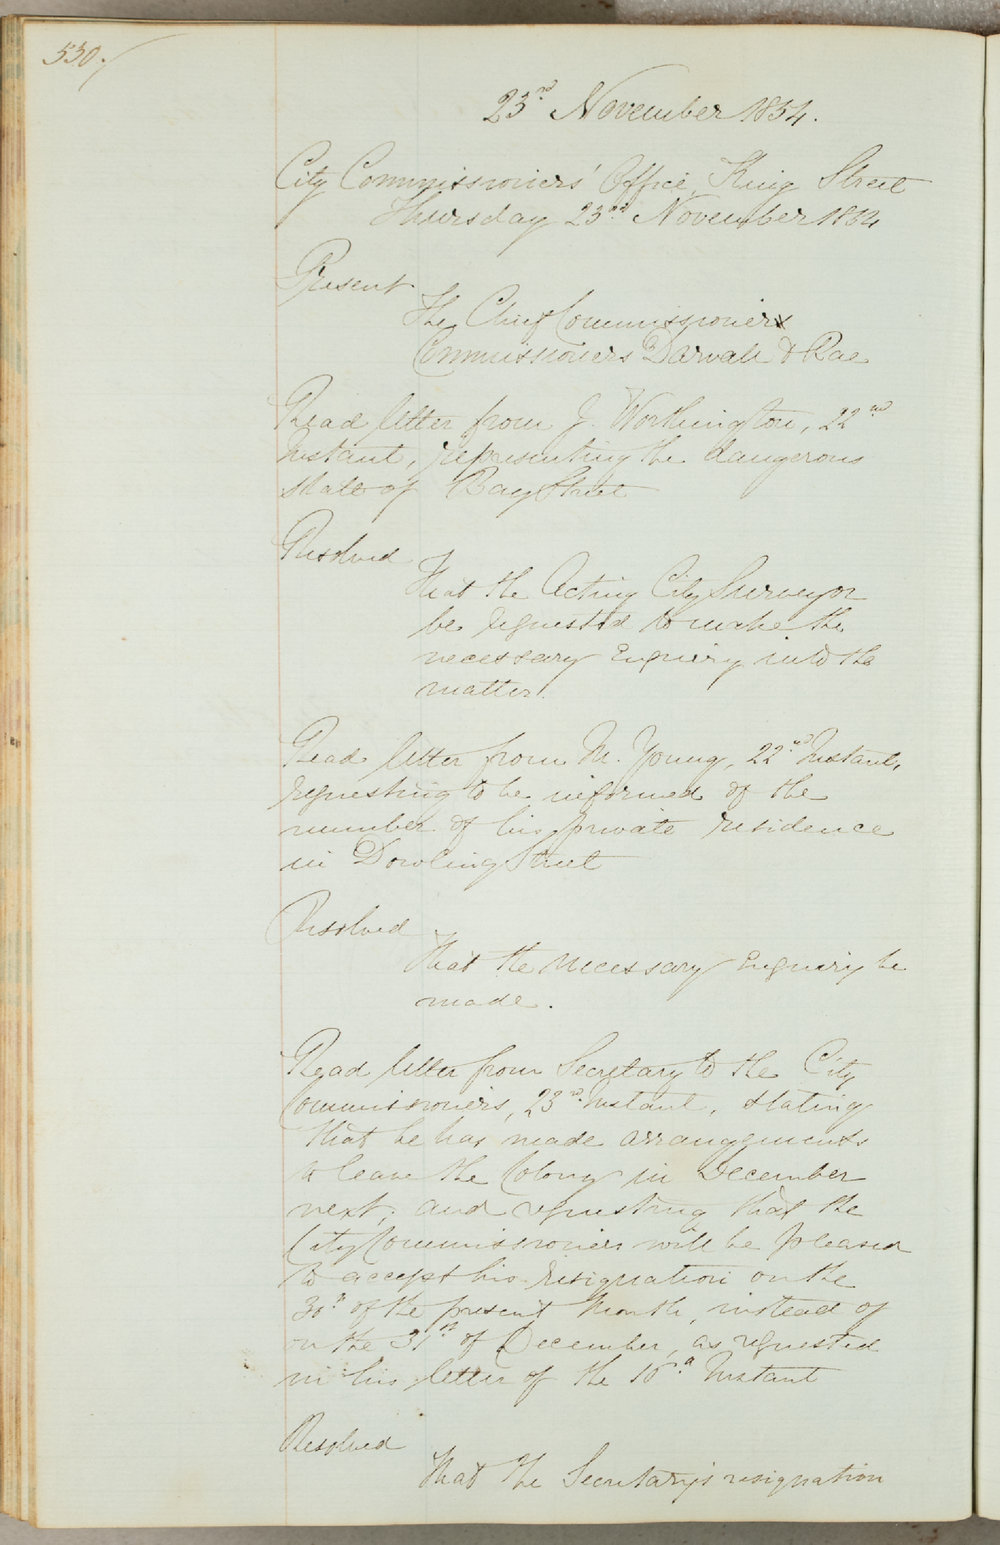 530.
23rd November 1854.
City Commissioners' Office, King Street
Thursday 23rd November 1854
Present
The Chief Commissioner
Commissioners Darvall & Rae
Read letter from J. Worthington, 22nd
Instant, representing the dangerous
state of Bay Street
Resolved
That the Acting City Surveyor
be requested to make the
necessary Enquiry into the
matter.
Read letter from M. Young, 22nd Instant,
requesting to be informed of the
number of his private residence
in Dowling Street
Resolved
That the necessary Enquiry be
made.
Read letter from Secretary to the City
Commissioners, 23rd Instant, stating
that he has made arrangements
to leave the Colony in December
next; and requesting that the
City Commissioners will be pleased
to accept his resignation on the
30th of the present Month, instead of
on the 31st of December, as requested
in his letter of the 16th Instant
Resolved
That the Secretary's resignation